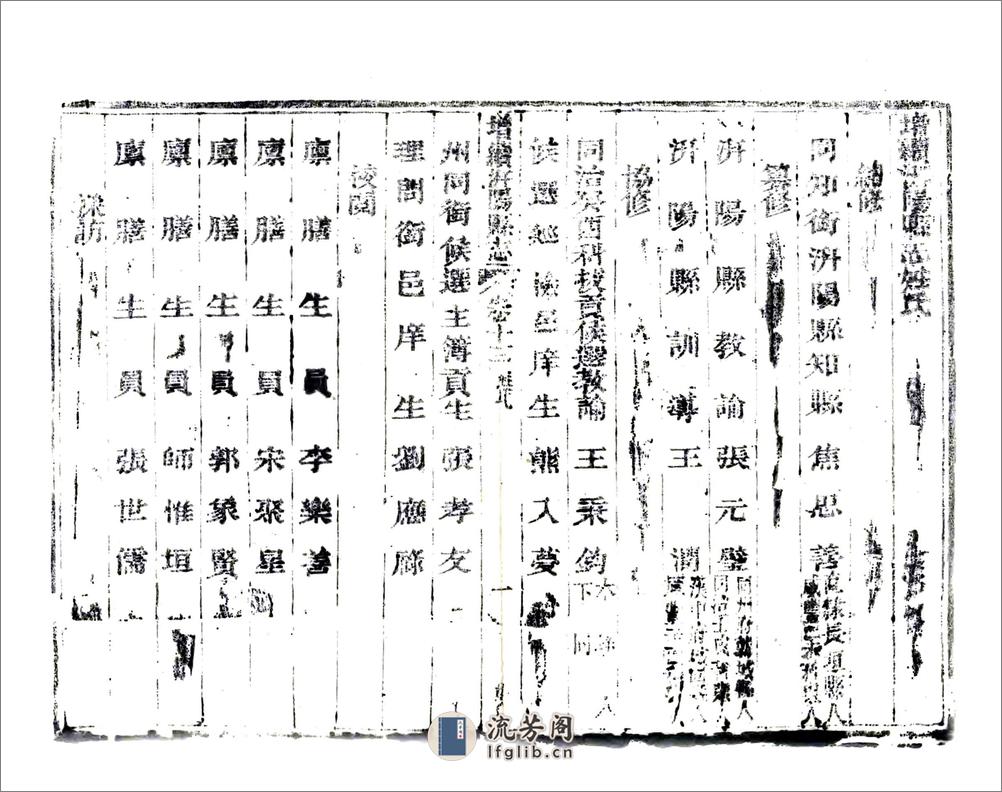 增續汧陽縣志姓氏
總修
同知銜汧陽縣知縣焦思善 直隸長垣縣人
纂修
汧陽縣教諭張元璧
汧陽縣訓導王潤
協修
同治癸酉科拔貢候選教諭王秉鈞 本縣人 下同
候選巡檢邑庠生熊入夢
增續汧陽縣志 卷十二 姓氏 一
州同銜候選主簿貢生張孝友
理問銜邑庠生劉應麟
校閱
廩膳生員李樂善
廩膳生員宋聚星
廩膳生員郭象賢
廩膳生員師惟垣
廩膳生員張世儒
採訪
流芳阁
lfglib.cn